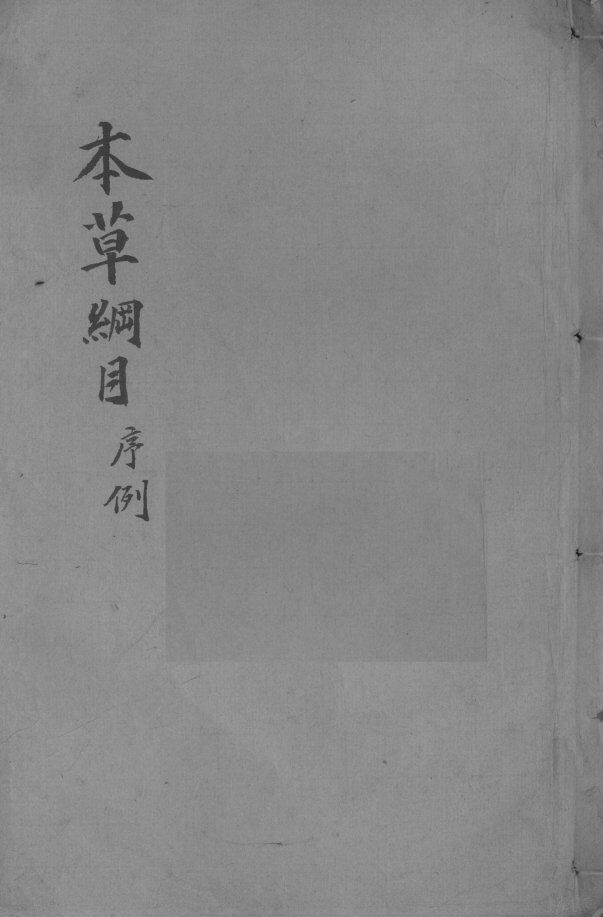 本草綱目 序例